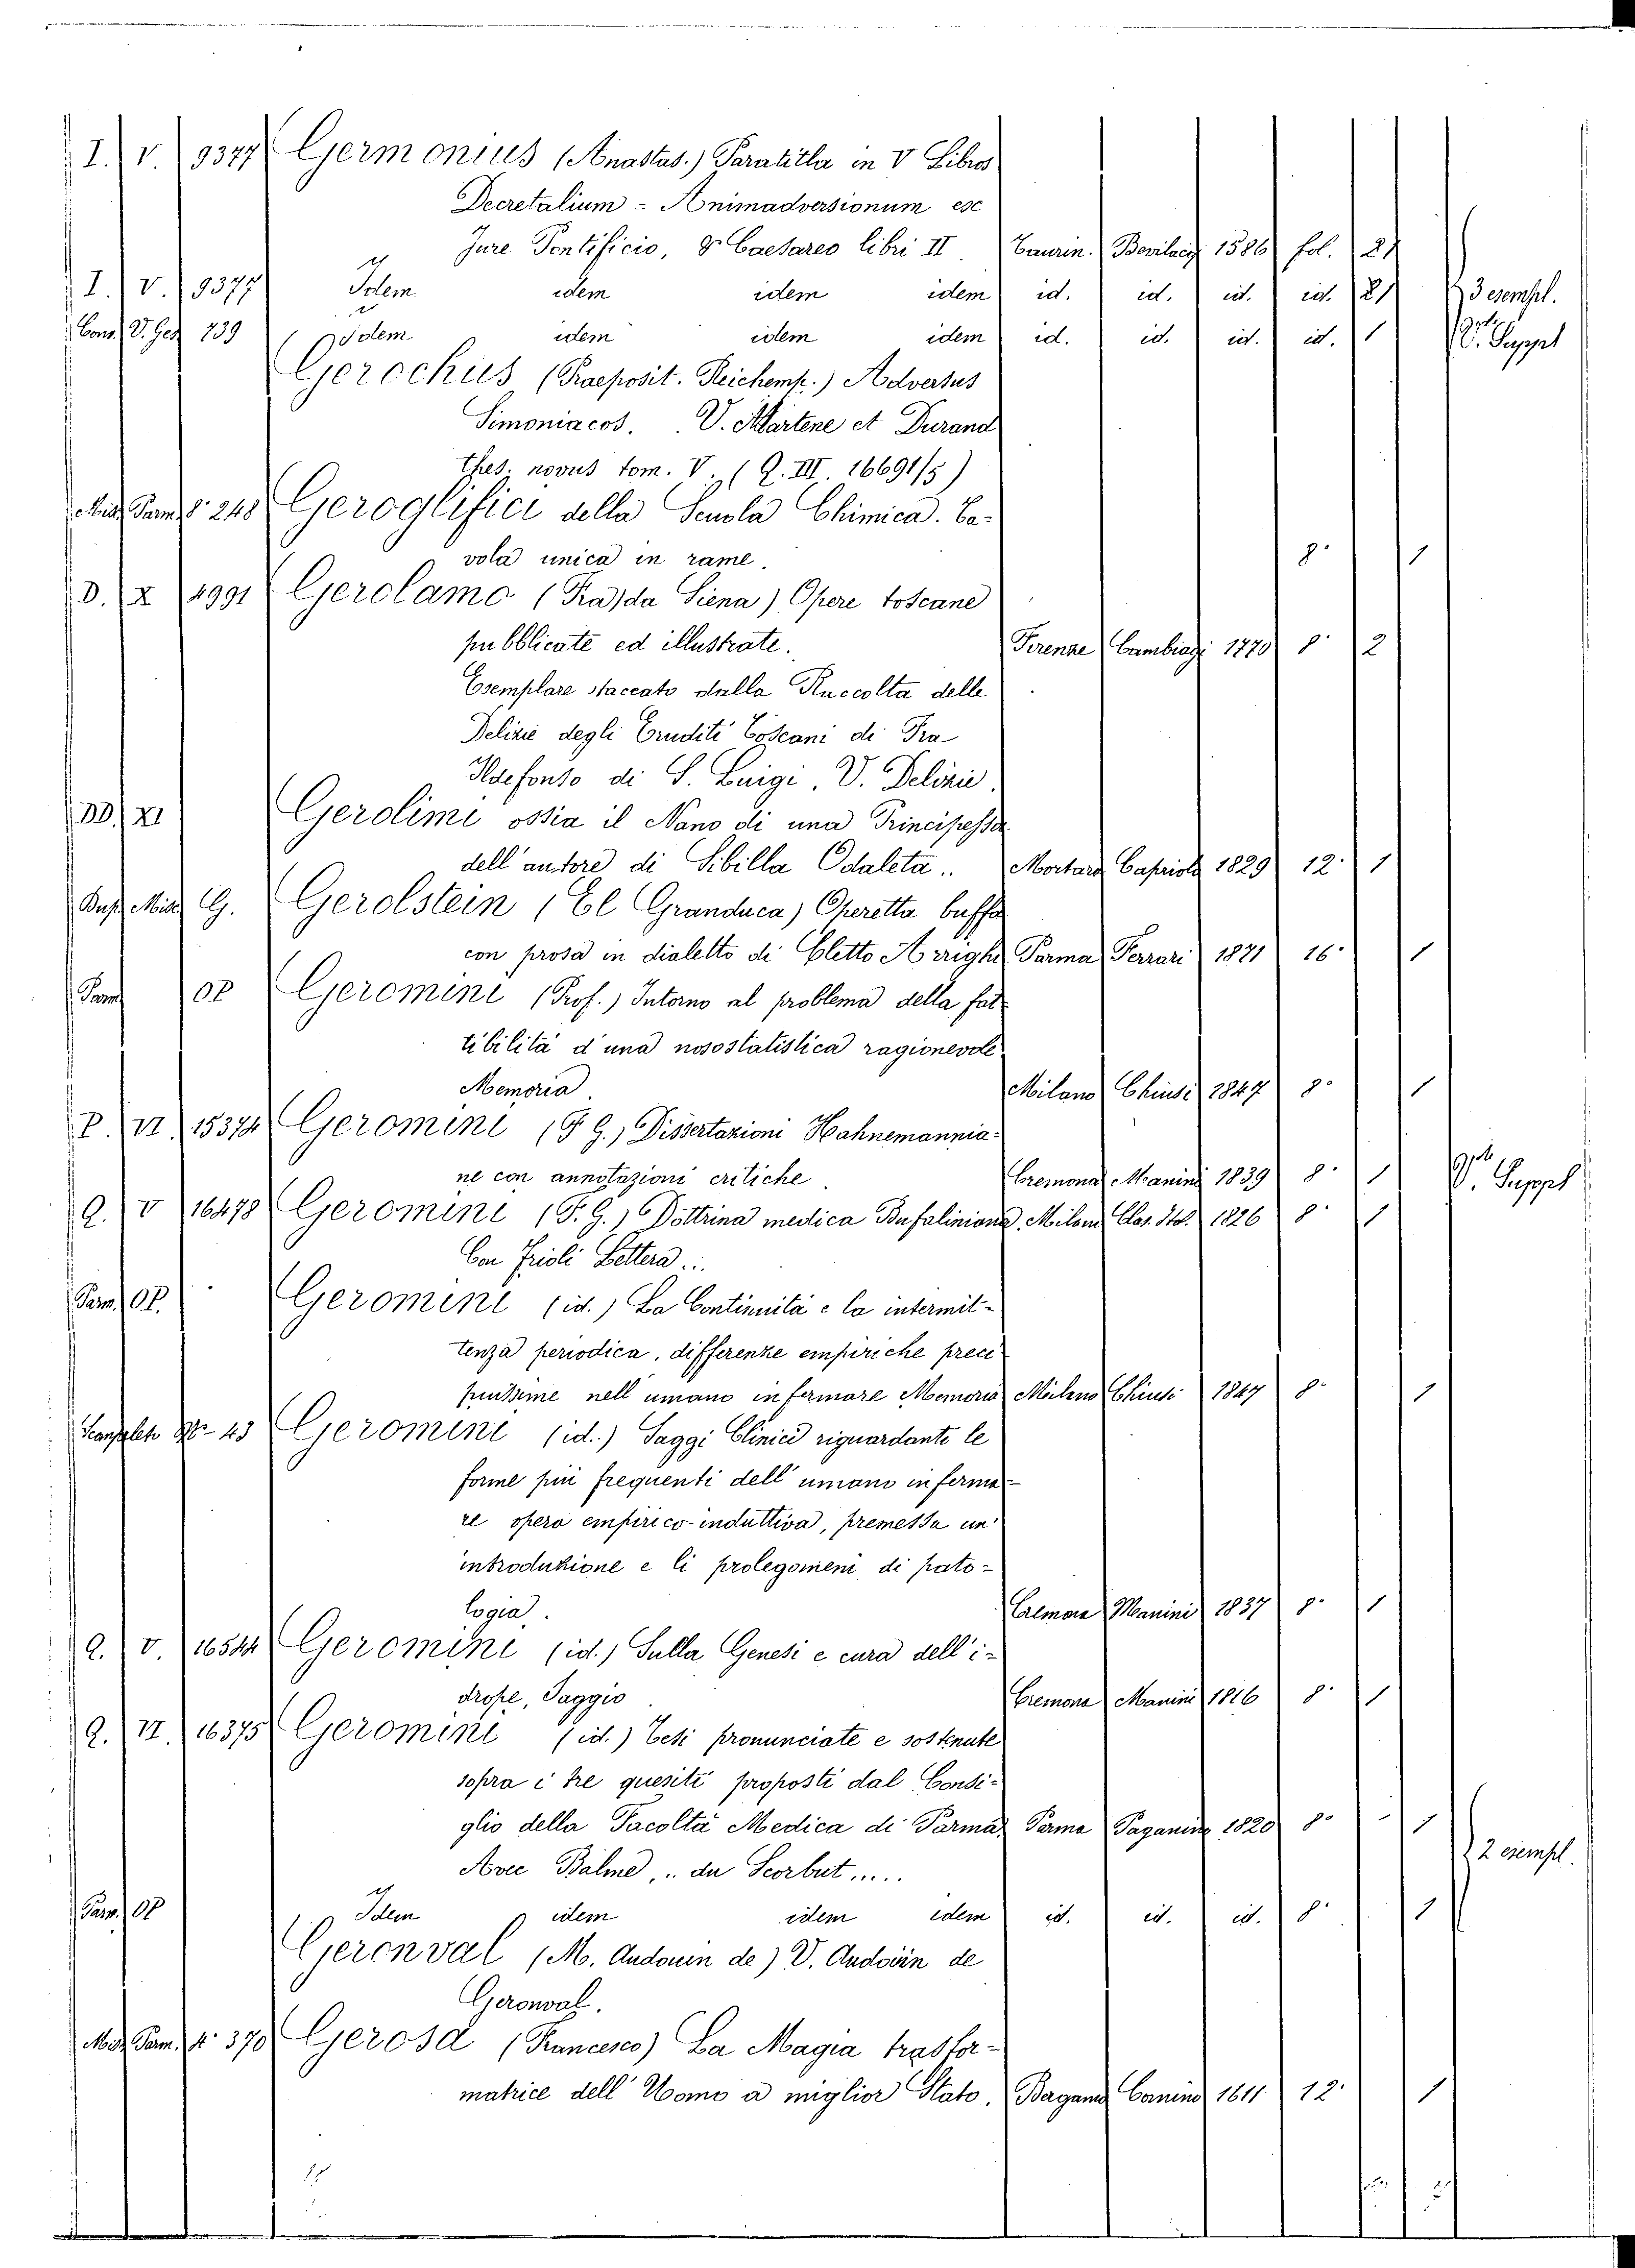 I. V. 9377 Germonius (Anastas.) Paratitla in V Libros
Decretalium - Animadversionum ex
Jure Pontificio, & Caesareo libri II. Taurin. Bevilacq 1586 fol. 21
I. V. 9377 Idem. idem idem idem id. id. id. id. 21 3 esempl.
Cons. V. Ges 739 Idem idem idem idem id. id. id. id. 1 V. Suppl
Gerochus (Praeposit. Reichemp.) Adversus
Simoniacos. . V. Martene et Durand
thes. novus tom. V. (Q. III. 16691/5)
Misc. Parm. 8.° 248 Geroglifici della Scuola Chimica. Ta-
vola unica in rame. 8.° 1
D. X 4991 Gerolamo (Fra) da Siena) Opere toscane
pubblicate ed illustrate. Firenze Cambiagi 1770 8.° 2
Esemplare staccato dalla Raccolta delle
Delizie degli Eruditi Toscani di Fra
Ildefonso di S. Luigi. V. Delizie.
DD. XI Gerolimi ossia il Nano di una Principessa
dell'autore di Sibilla Odaleta.. Mortara Capriolo 1829 12.° 1
Misc. G. Gerolstein (El Granduca) Operetta buffa
con prosa in dialetto di Cletto Arrighi Parma Ferrari 1871 16.° 1
Parm OP Geromini (Prof.) Intorno al problema della fat-
tibilità d'una nosostatistica ragionevole
Memoria. Milano Chiusi 1847 8.° 1
P. VI. 15374 Geromini (F. G.) Dissertazioni Hahnemannia-
ne con annotazioni critiche. Cremona Manini 1839 8.° 1 V. Suppl
Q. V 16478 Geromini (F. G.) Dottrina medica Bufaliniana. Milano Clas. Ital. 1826 8.° 1
Con Frioli Lettera...
Parm. OP. Geromini (id.) La Continuità e la intermit-
tenza periodica, differenze empiriche preci-
puissime nell'umano infermare Memoria Milano Chiusi 1847 8.° 1
N.° 43 Geromini (id.) Saggi Clinici riguardante le
forme più frequenti dell'umano inferma-
re opera empirico-induttiva, premessa un'
introduzione e li prolegomeni di pato-
logia. Cremona Manini 1837 8.° 1
Q. V. 16544 Geromini (id.) Sulla Genesi e cura dell'i-
drope, Saggio Cremona Manini 1816 8.° 1
Q. VI. 16375 Geromini (id.) Tesi pronunciate e sostenute
sopra i tre quesiti proposti dal Consi-
glio della Facoltà Medica di Parma. Parma Paganino 1820 8.° 1 2 esempl.
Avec Balme, .. du Scorbut .....
Parm. OP Idem idem idem idem id. id. id. 8.° 1
Geronval (M. Audouin de) V. Audoüin de
Geronval.
Misc. Parm. 4.° 370 Gerosa (Francesco) La Magia trasfor-
matrice dell'Uomo a miglior Stato. Bergamo Comino 1611. 12.° 1